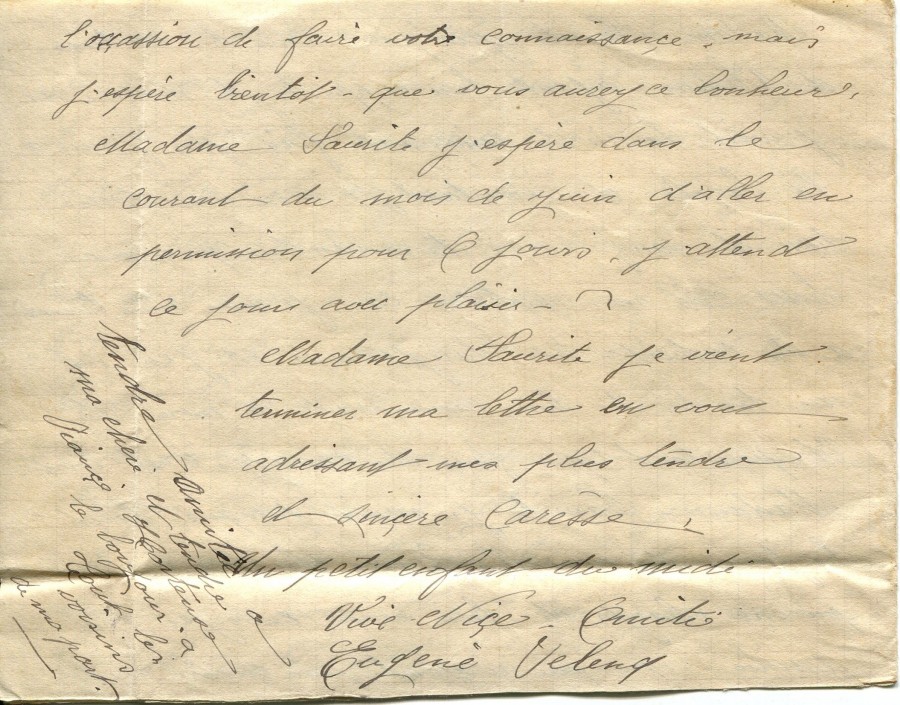 l'occassion de faire votre connaissance, mais
j'espère bientot - que vous aurez ce bonheur,
Madame Saurite j'espère dans le
courant du mois de juin d'aller en
permission pour 6 jours, j'attend
ce jour avec plaisir -
Madame Saurite je vient
terminer ma lettre en vous
adressant mes plus tendre
et sinçère Carèsse,
Un petit enfant du midi
Vive Niçe - Amitié
Eugène
tendre amitié a
ma chère et tendre
bonjour
voisins
de ma part.